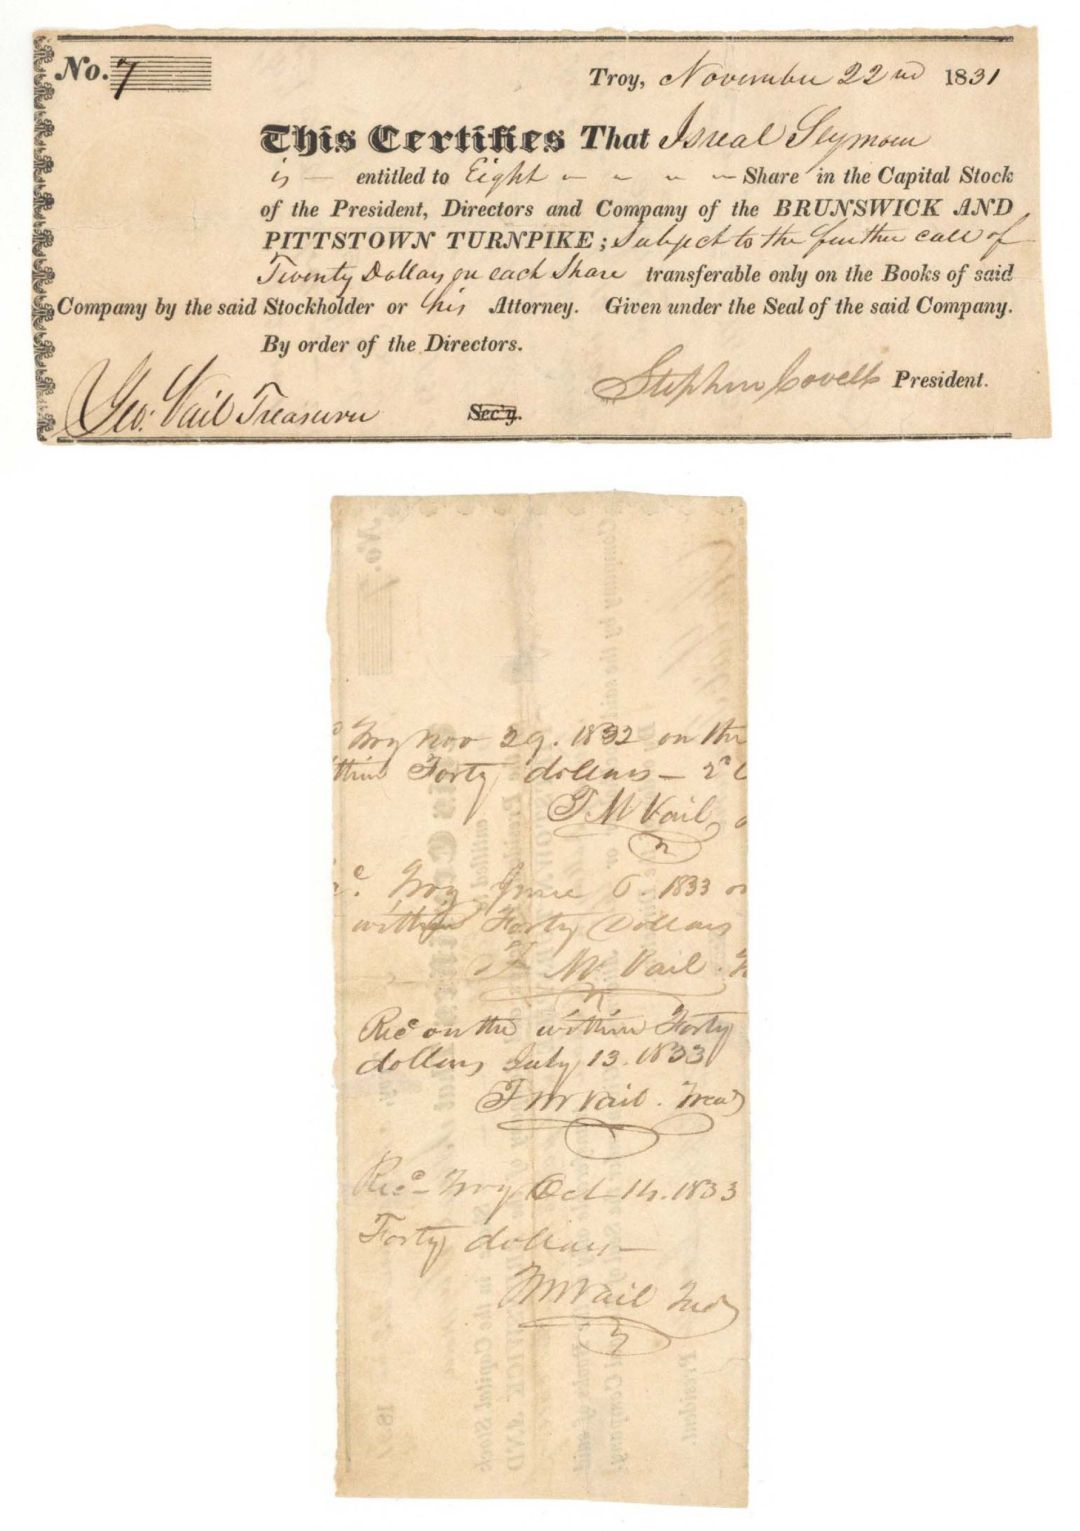 No. 7
Troy, November 22nd 1831
This Certifies That Isreal Seymour
is entitled to Eight Share in the Capital Stock
of the President, Directors and Company of the BRUNSWICK AND
PITTSTOWN TURNPIKE; Subject to the further call of
Twenty Dollars on each Share transferable only on the Books of said
Company by the said Stockholder or his Attorney. Given under the Seal of the said Company.
By order of the Directors.
Stephen Covell President.
Geo. Vail Treasurer Sec'y.
Troy Nov 29. 1832 on the
Forty dollars —
T M Vail
Troy June 6. 1833
within Forty Dollars
T M Vail.
Recd on the within Forty
dollars July 13. 1833
T M Vail. Treas
Recd Troy Oct 14. 1833
Forty dollars —
T M Vail